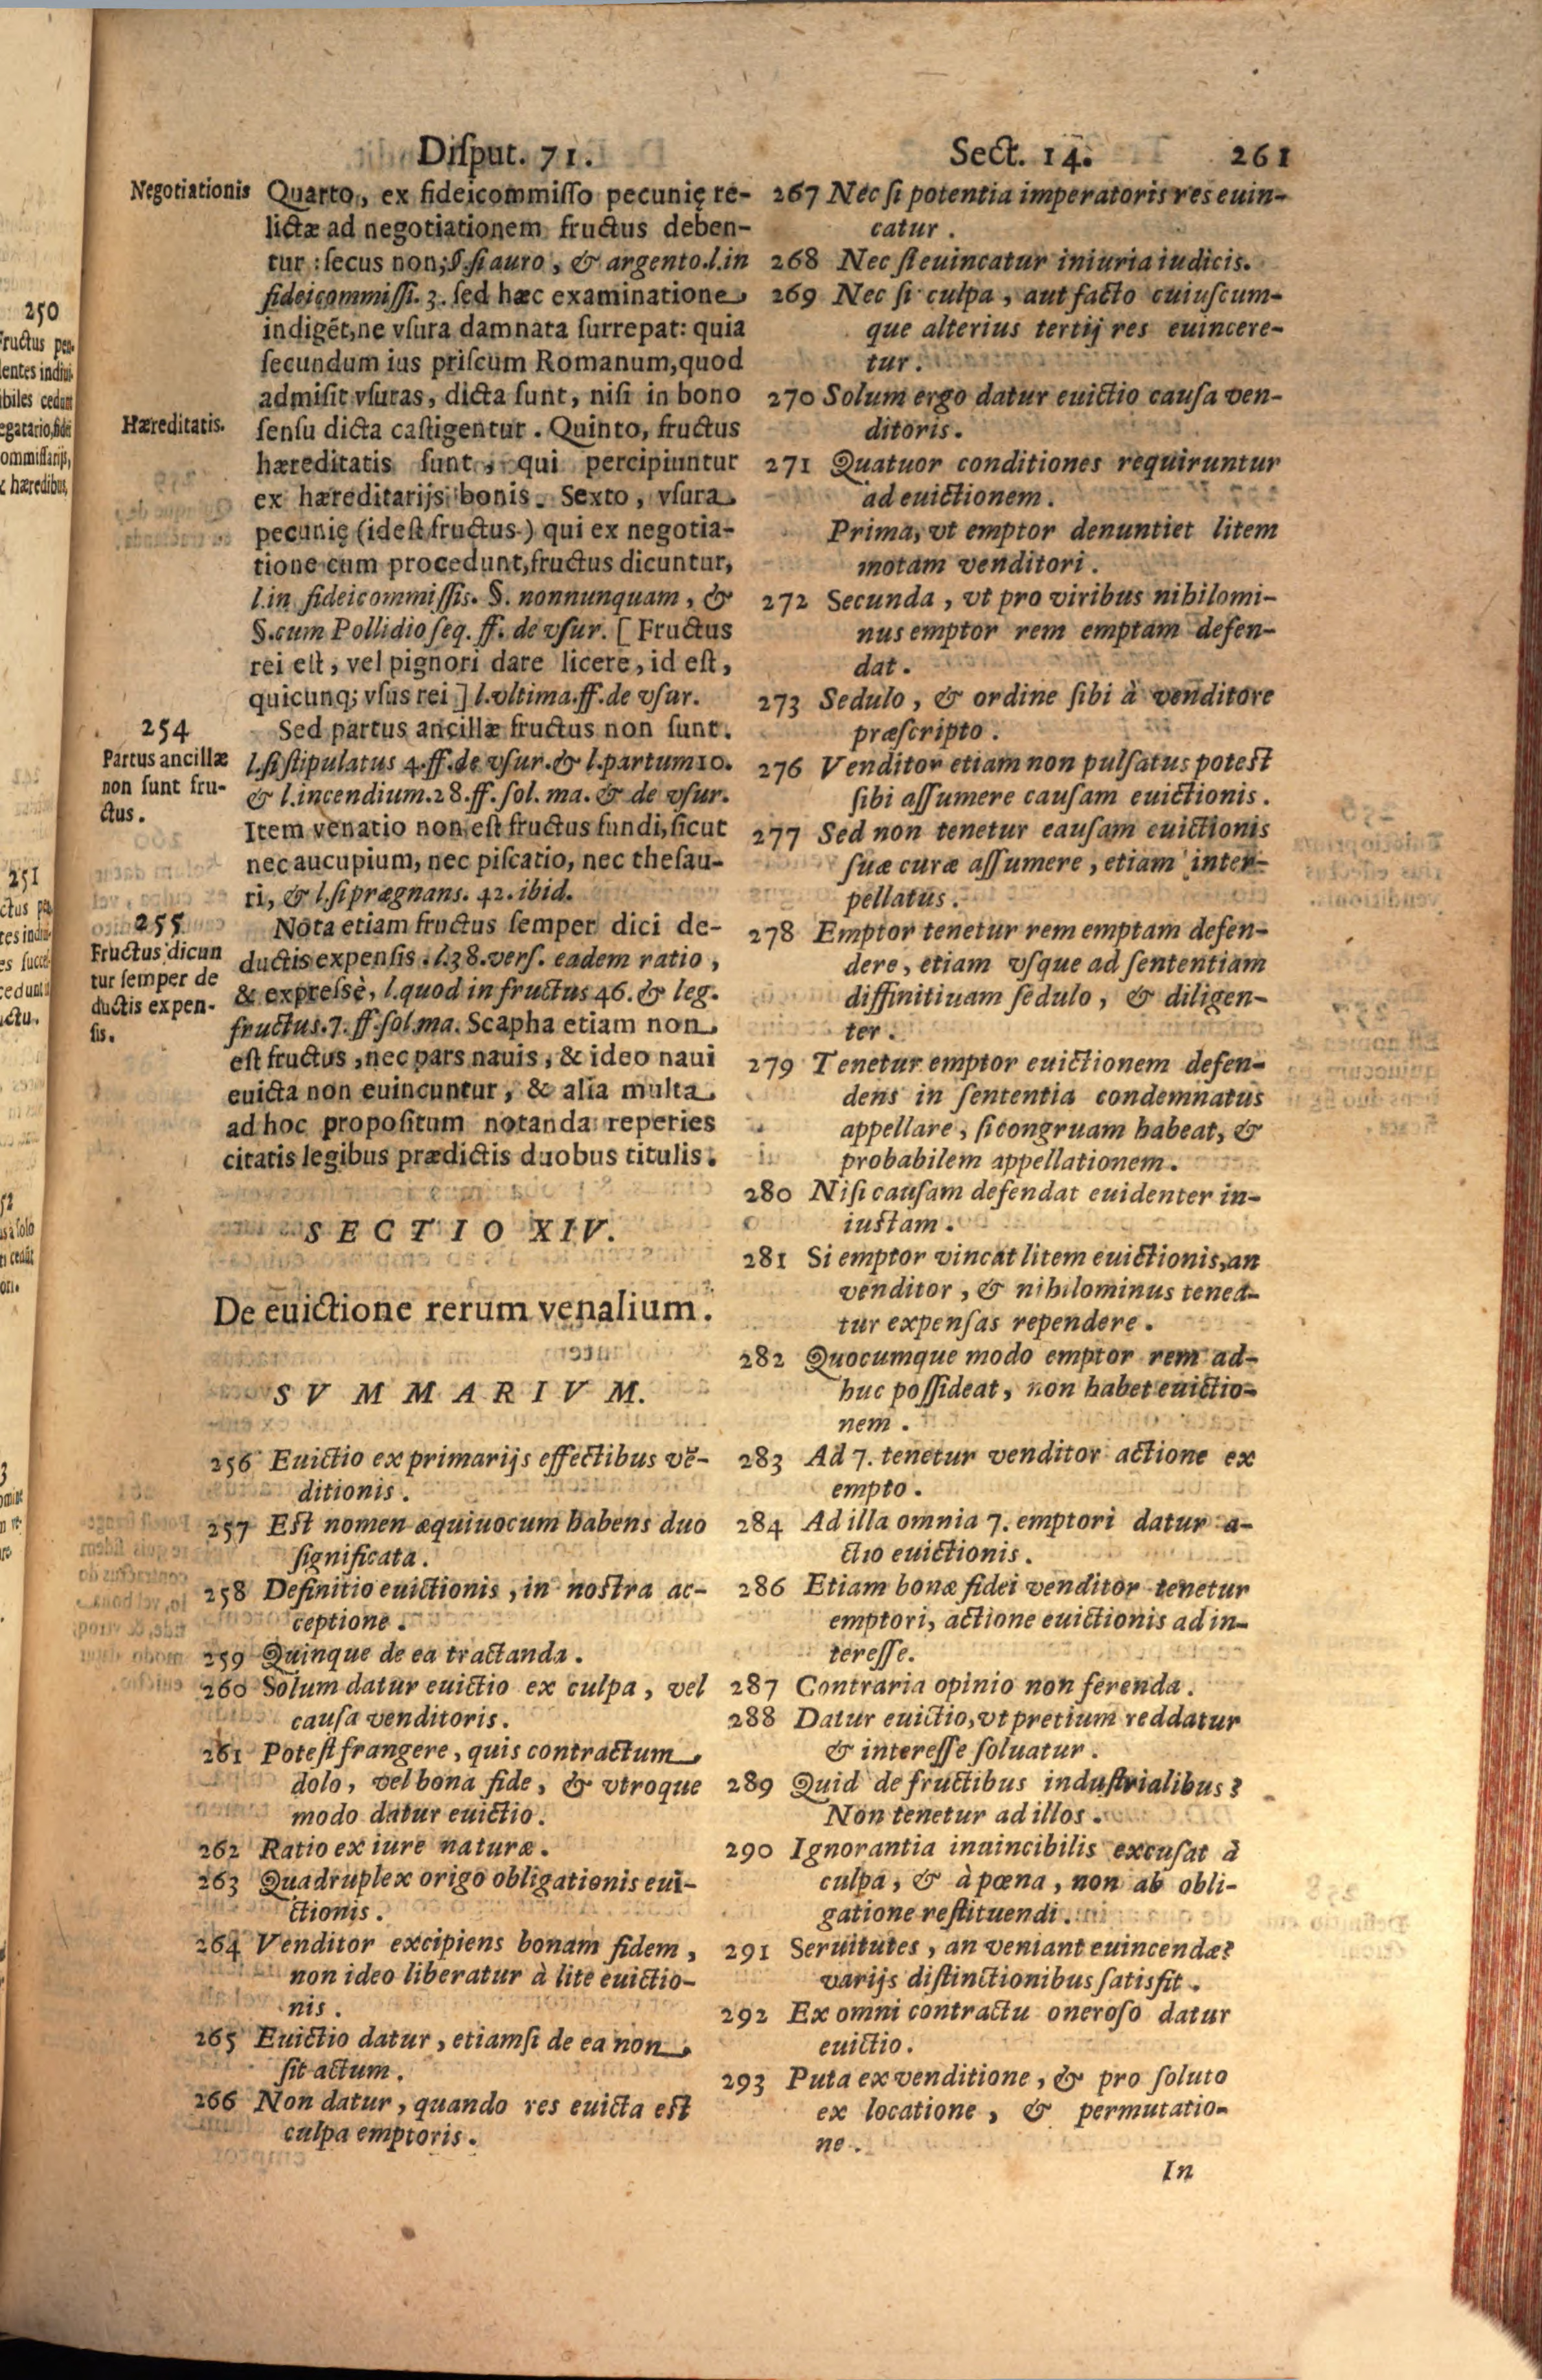 Disput. 71.
Sect. 14.
261
Negotiationis
Quarto, ex fideicommisso pecunię re-
lictæ ad negotiationem fructus deben-
tur : secus non; §. si auro, & argento. l. in
fideicommissi. 3. sed hæc examinatione
indigēt, ne vsura damnata surrepat: quia
secundum ius priscum Romanum, quod
admisit vsuras, dicta sunt, nisi in bono
Hæreditatis.
sensu dicta castigentur. Quinto, fructus
hæreditatis sunt, qui percipiuntur
ex hæreditarijs bonis. Sexto, vsura
pecunię (idest fructus) qui ex negotia-
tione cum procedunt, fructus dicuntur,
l. in fideicommissis. §. nonnunquam, &
§. cum Pollidio seq. ff. de vsur. [ Fructus
rei est, vel pignori dare licere, id est,
quicunq; vsus rei ] l. vltima. ff. de vsur.
254
Partus ancillæ
non sunt fru-
ctus.
Sed partus ancillæ fructus non sunt.
l. si stipulatus 4. ff. de vsur. & l. partum 10.
& l. incendium. 28. ff. sol. ma. & de vsur.
Item venatio non est fructus fundi, sicut
nec aucupium, nec piscatio, nec thesau-
ri, & l. si prægnans. 42. ibid.
255
Fructus dicun
tur semper de
ductis expen-
sis.
Nota etiam fructus semper dici de-
ductis expensis. l. 38. vers. eadem ratio,
& expressè, l. quod in fructus 46. & leg.
fructus. 7. ff. sol. ma. Scapha etiam non
est fructus, nec pars nauis, & ideo naui
euicta non euincuntur, & alia multa
ad hoc propositum notanda reperies
citatis legibus prædictis duobus titulis.
SECTIO XIV.
De euictione rerum venalium.
SVMMARIVM.
256 Euictio ex primarijs effectibus vē-
ditionis.
257 Est nomen æquiuocum habens duo
significata.
258 Definitio euictionis, in nostra ac-
ceptione.
259 Quinque de ea tractanda.
260 Solum datur euictio ex culpa, vel
causa venditoris.
261 Potest frangere, quis contractum
dolo, vel bona fide, & vtroque
modo datur euictio.
262 Ratio ex iure naturæ.
263 Quadruplex origo obligationis eui-
ctionis.
264 Venditor excipiens bonam fidem,
non ideo liberatur à lite euictio-
nis.
265 Euictio datur, etiamsi de ea non
sit actum.
266 Non datur, quando res euicta est
culpa emptoris.
267 Nec si potentia imperatoris res euin-
catur.
268 Nec si euincatur iniuria iudicis.
269 Nec si culpa, aut facto cuiuscum-
que alterius tertij res euincere-
tur.
270 Solum ergo datur euictio causa ven-
ditoris.
271 Quatuor conditiones requiruntur
ad euictionem.
Prima, vt emptor denuntiet litem
motam venditori.
272 Secunda, vt pro viribus nihilomi-
nus emptor rem emptam defen-
dat.
273 Sedulo, & ordine sibi à venditore
præscripto.
276 Venditor etiam non pulsatus potest
sibi assumere causam euictionis.
277 Sed non tenetur eausam euictionis
suæ curæ assumere, etiam inter-
pellatus.
278 Emptor tenetur rem emptam defen-
dere, etiam vsque ad sententiam
diffinitiuam sedulo, & diligen-
ter.
279 Tenetur emptor euictionem defen-
dens in sententia condemnatus
appellare, si congruam habeat, &
probabilem appellationem.
280 Nisi causam defendat euidenter in-
iustam.
281 Si emptor vincat litem euictionis, an
venditor, & nihilominus tenea-
tur expensas rependere.
282 Quocumque modo emptor rem ad-
huc possideat, non habet euictio-
nem.
283 Ad 7. tenetur venditor actione ex
empto.
284 Ad illa omnia 7. emptori datur a-
ctio euictionis.
286 Etiam bonæ fidei venditor tenetur
emptori, actione euictionis ad in-
teresse.
287 Contraria opinio non ferenda.
288 Datur euictio, vt pretium reddatur
& interesse soluatur.
289 Quid de fructibus industrialibus?
Non tenetur ad illos.
290 Ignorantia inuincibilis excusat à
culpa, & à pœna, non ab obli-
gatione restituendi.
291 Seruitutes, an veniant euincendæ?
varijs distinctionibus satisfit.
292 Ex omni contractu oneroso datur
euictio.
293 Puta ex venditione, & pro soluto
ex locatione, & permutatio-
ne.
In
250
251